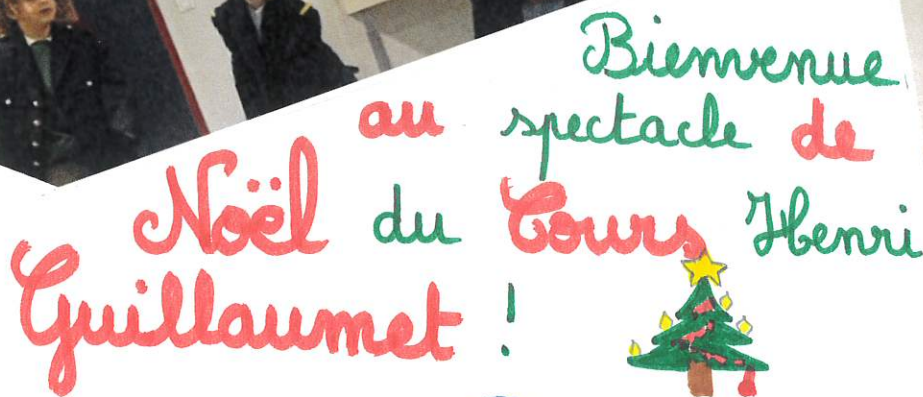 Bienvenue
au spectacle de
Noël du Cours Henri
Guillaumet !